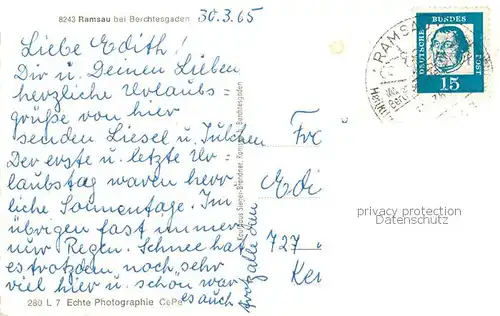 8243 Ramsau bei Berchtesgaden
30.3.65
Liebe Edith!
Dir u. Deinen Lieben
herzliche Urlaubs=
grüße von hier
senden Liesel u. Julchen
Der erste u. letzte Ur=
laubstag waren herr
liche Sonnentage. Im
übrigen fast immer
nur Regen. Schnee hat
es trotzdem noch sehr
viel hier u. schön war
es auch trotz alle dem
280 L 7 Echte Photographie CePe
Berchtesgaden
Fr
Edi
727
Ker
RAMSA
DEUTSCHE BUNDESPOST
15
privacy protection
Datenschutz